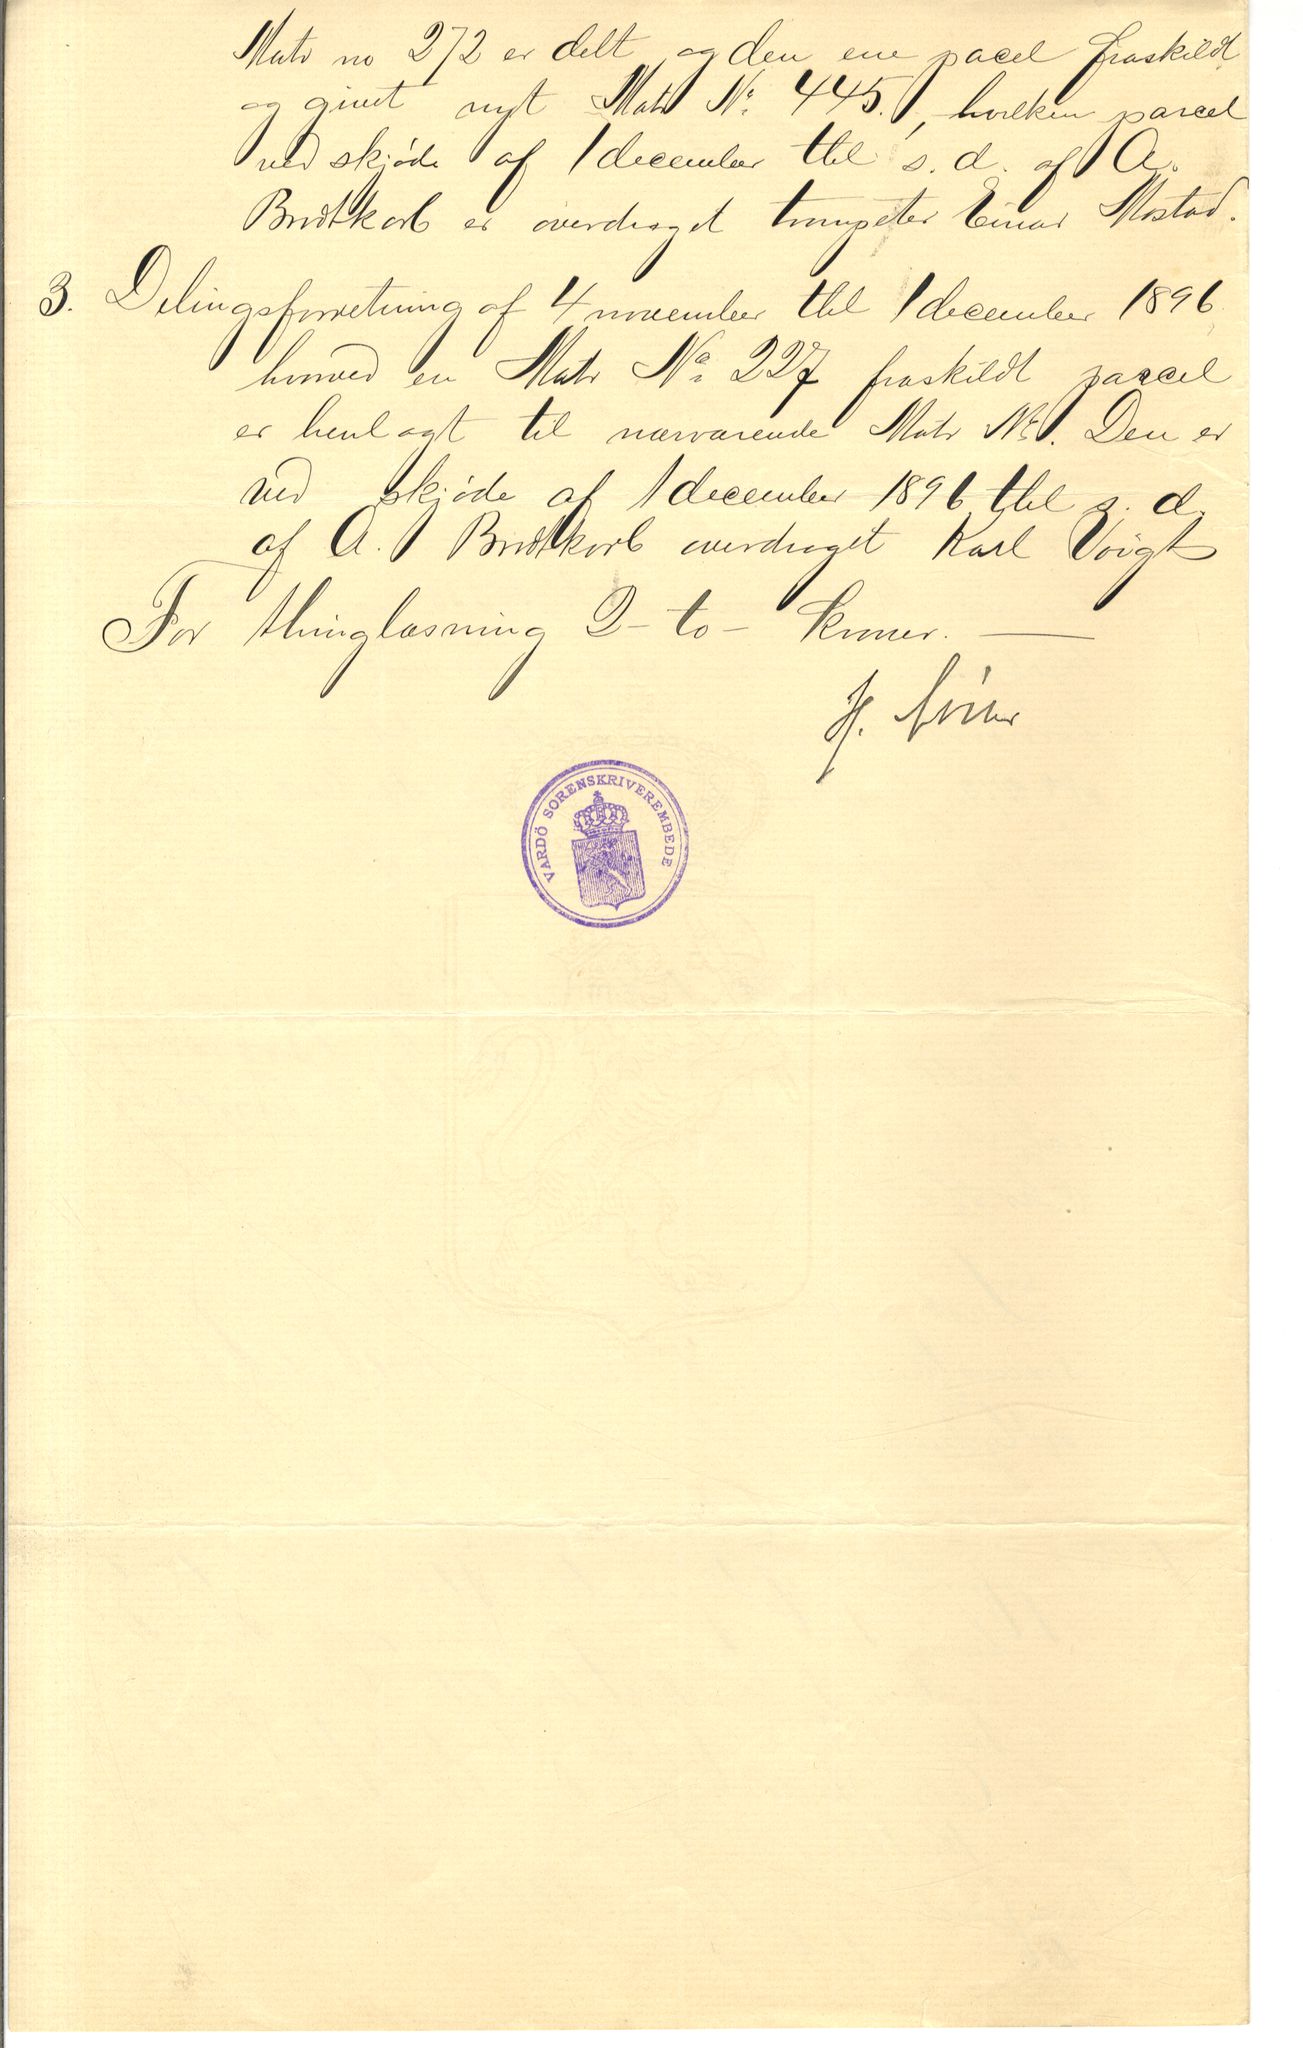 Matr no 272 er delt og den ene pacel fraskildt
og givet nyt Matr No 445., hvilken parcel
ved skjøde af 1 december thl s. d. af A.
Brodtkorb er overdraget trompeter Einar Mostad.
3. Delingsforretning af 4 november thl 1 december 1896
hvorved en Matr No 227 fraskildt parcel
er henlagt til nærværende Matr No. Den er
ved skjøde af 1 december 1896 thl s. d.
af A. Brodtkorb overdraget Karl Voigt
For thinglæsning 2 - to - kroner. —
H.
VARDÖ SORENSKRIVEREMBEDE